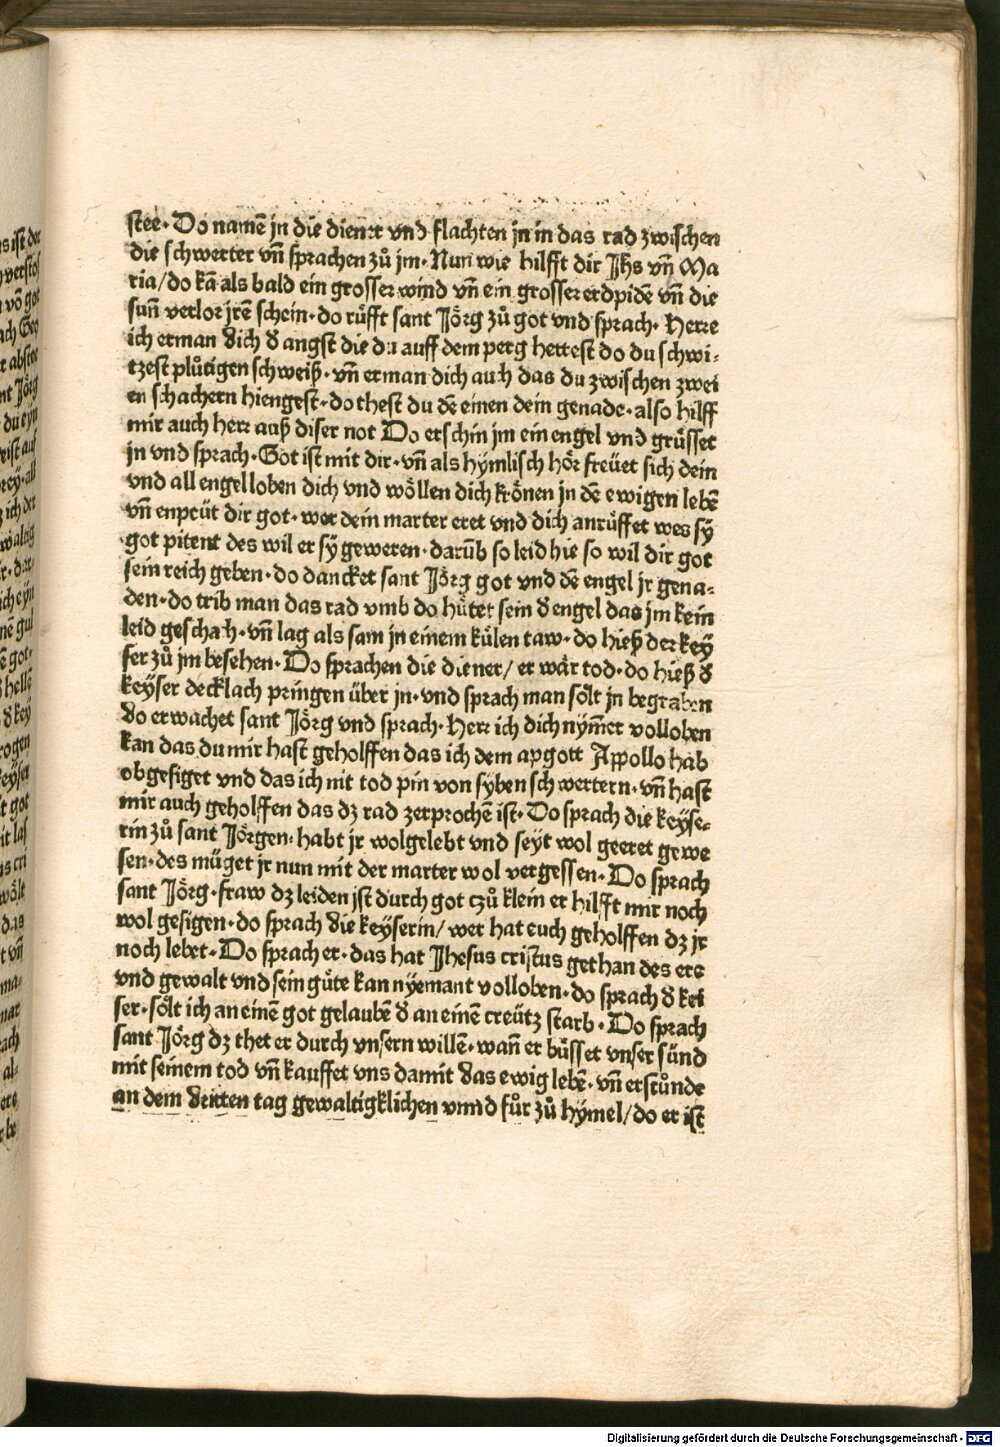 stee· Do namē jn die diener vnd flachten jn in das rad zwischen
die schwerter vn̄ sprachen zů jm· Nun wie hilfft dir Jhs vn̄ Ma
ria/do kā als bald ein grosser wind vn̄ ein grosser erdpidē vn̄ die
sun̄ verlor jrē schein· do růfft sant Jörg zů got vnd sprach· Herre
ich erman dich d angst die du auff dem perg hettest do du schwi⸗
tzest plůtigen schweiß· vn̄ erman dich auch das du zwischen zwei
en schachern hiengest· do thest du dē einen dein genade· also hilff
mir auch herr auß diser not Do erschin jm ein engel vnd grůsset
jn vnd sprach· Got ist mit dir· vn̄ als hymlisch hör freüet sich dein
vnd all engel loben dich vnd wöllen dich krönen jn dē ewigen lebē
vn̄ enpeüt dir got· wer dein marter eret vnd dich anrůffet wes sy
got pitent des wil er sy geweren· darūb so leid hie so wil dir got
sein reich geben· do dancket sant Jörg got vnd dē engel jr gena⸗
den· do trib man das rad vmb do hůtet sein d engel das jm kein
leid geschah· vn̄ lag als sam jn einem kůlen taw· do hieß der key
ser zů jm besehen· Do sprachen die diener/ er wär tod· do hieß d
keyser decklach pringen über jn· vnd sprach man sölt jn begraben
do erwachet sant Jörg vnd sprach· Herr ich dich nym̄er volloben
kan das du mir hast geholffen das ich dem apgott Appollo hab
obgesiget vnd das ich nit tod pin von syben schwertern· vn̄ hast
mir auch geholffen das dz rad zerprochē ist· Do sprach die keyse⸗
rin zů sant Jörgen· habt jr wolgelebt vnd seyt wol geeret gewe
sen· des müget jr nun mit der marter wol vergessen· Do sprach
sant Jörg· fraw dz leiden jst durch got czů klein er hilfft mir noch
wol gesigen· do sprach die keyserin/ wer hat euch geholffen dz jr
noch lebet· Do sprach er· das hat Jhesus cristus gethan des ere
vnd gewalt vnd sein gůte kan nyemant volloben· do sprach d kei
ser· sölt ich an einē got gelaubē d an einē creütz starb· Do sprach
sant Jörg dz thet er durch vnsern willē· wan̄ er bůsset vnser sünd
mit seinem tod vn̄ kauffet vns damit das ewig lebē· vn̄ erstůnde
an dem dritten tag gewaltigklichen vnnd fůr zů hymel/do er ist
Digitalisierung gefördert durch die Deutsche Forschungsgemeinschaft - DFG